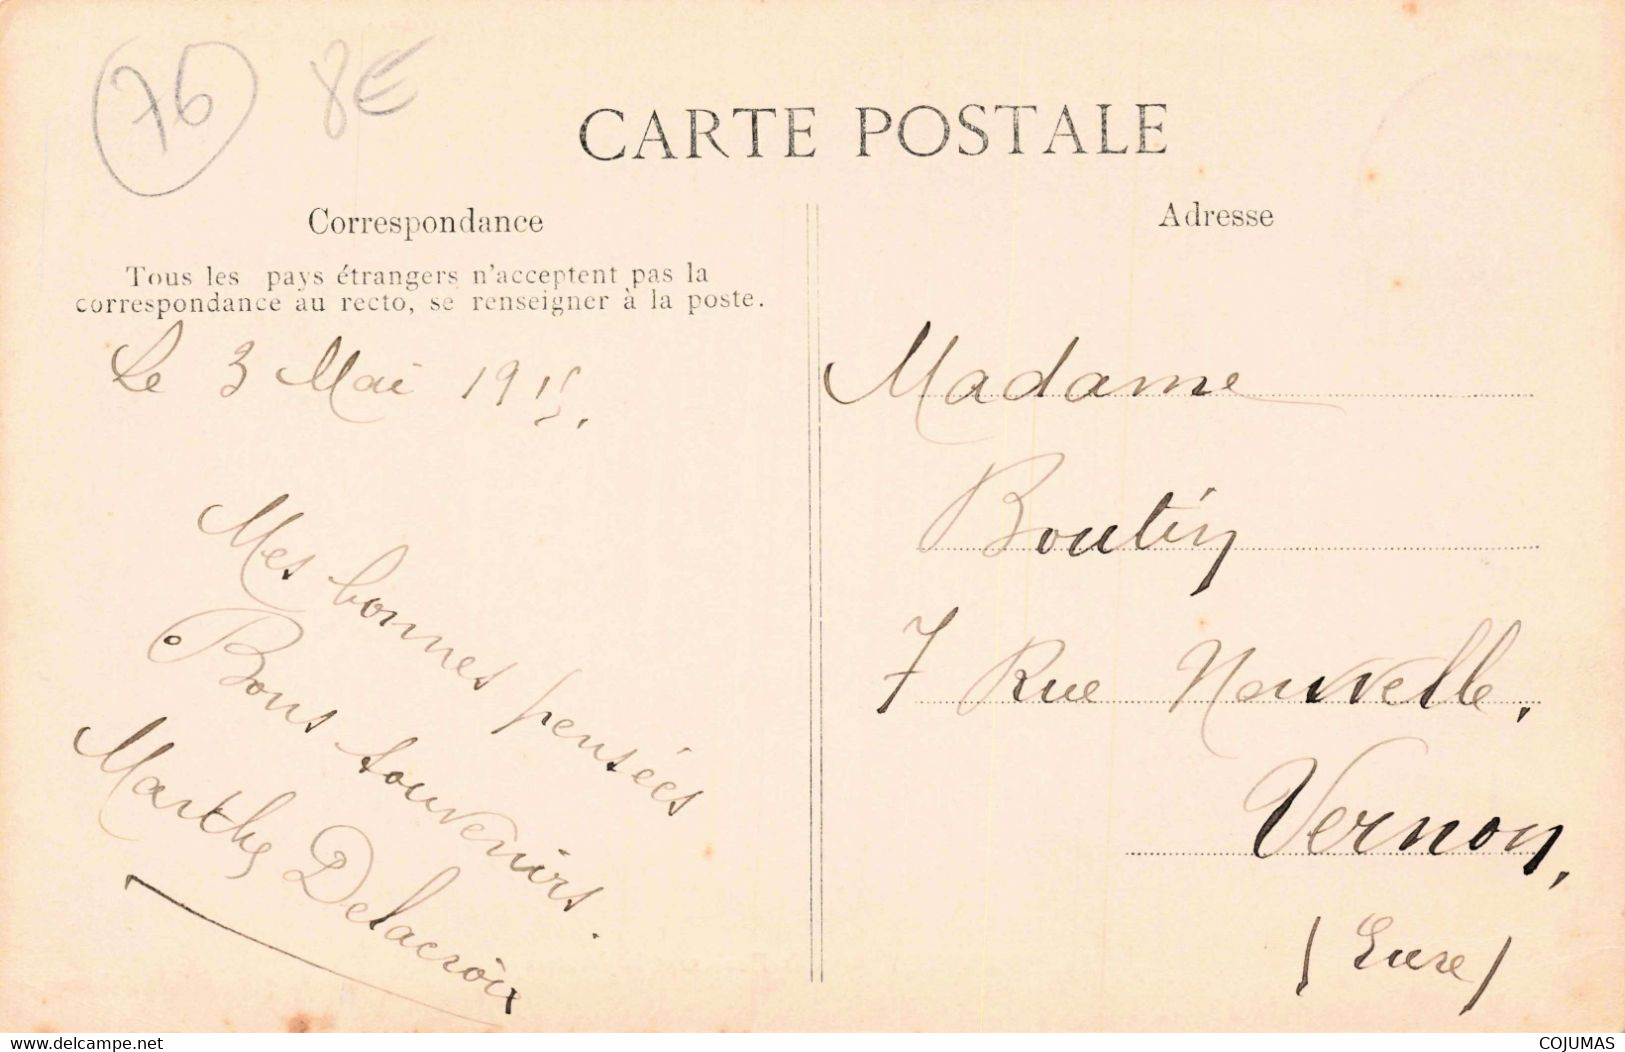 76 8€
CARTE POSTALE
Correspondance
Tous les pays étrangers n'acceptent pas la
correspondance au recto, se renseigner à la poste.
Le 3 Mai 1915.
Mes bonnes pensées
Bons souvenirs.
Marthe Delacroix
Adresse
Madame
Boutin
7 Rue Neuvelle,
Vernon,
(Eure)
www.delcampe.net
COJUMAS